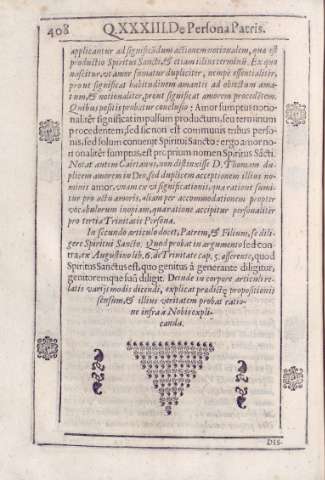 408 Q.XXXIII. De Persona Patris.
applicantur ad significãdum actionem notionalem, qua est
productio Spiritus Sancti, & etiam illius terminũ. Ex quo
nascitur, vt amor sumatur dupliciter, nempè essentialiter,
prout significat habitudinem amantis ad obiectum ama-
tum, & notionaliter, prout significat amorem procedẽtem.
Quibus positis probatur conclusio: Amor sumptus notio-
naliter significat impsum productum, seu terminum
procedentem, sed sic non est communis tribus perso-
nis, sed solum conuenit Spiritui Sancto: ergo amor no-
tionaliter sumptus, est proprium nomen Spiritus Sãcti.
Notat autem Caietanus, non distinxisse D. Thomam du-
plicem amorem in Deo, sed duplicem acceptionem illius no-
minis amor, vnam ex vi significationis, qua ratione sumi-
tur pro actu amoris, aliam per accommodationem propter
vocabulorum inopiam, qua ratione accipitur personaliter
pro tertia Trinitatis Persona.
In secundo articulo docet, Patrem, & Filium, se dili-
gere Spiritui Sancto. Quod probat in argumento sed con-
tra, ex Augustino lib. 6. de Trinitate cap. 5. asserente, quod
Spiritus Sanctus est, quo genitus à generante diligitur,
genitoremque suũ diligit. Deinde in corpore articuli re-
latis varijs modis dicendi, explicat prædictę propositionis
sensum, & illius veritatem probat ratio-
ne infra à Nobis expli-
canda.
DIS-